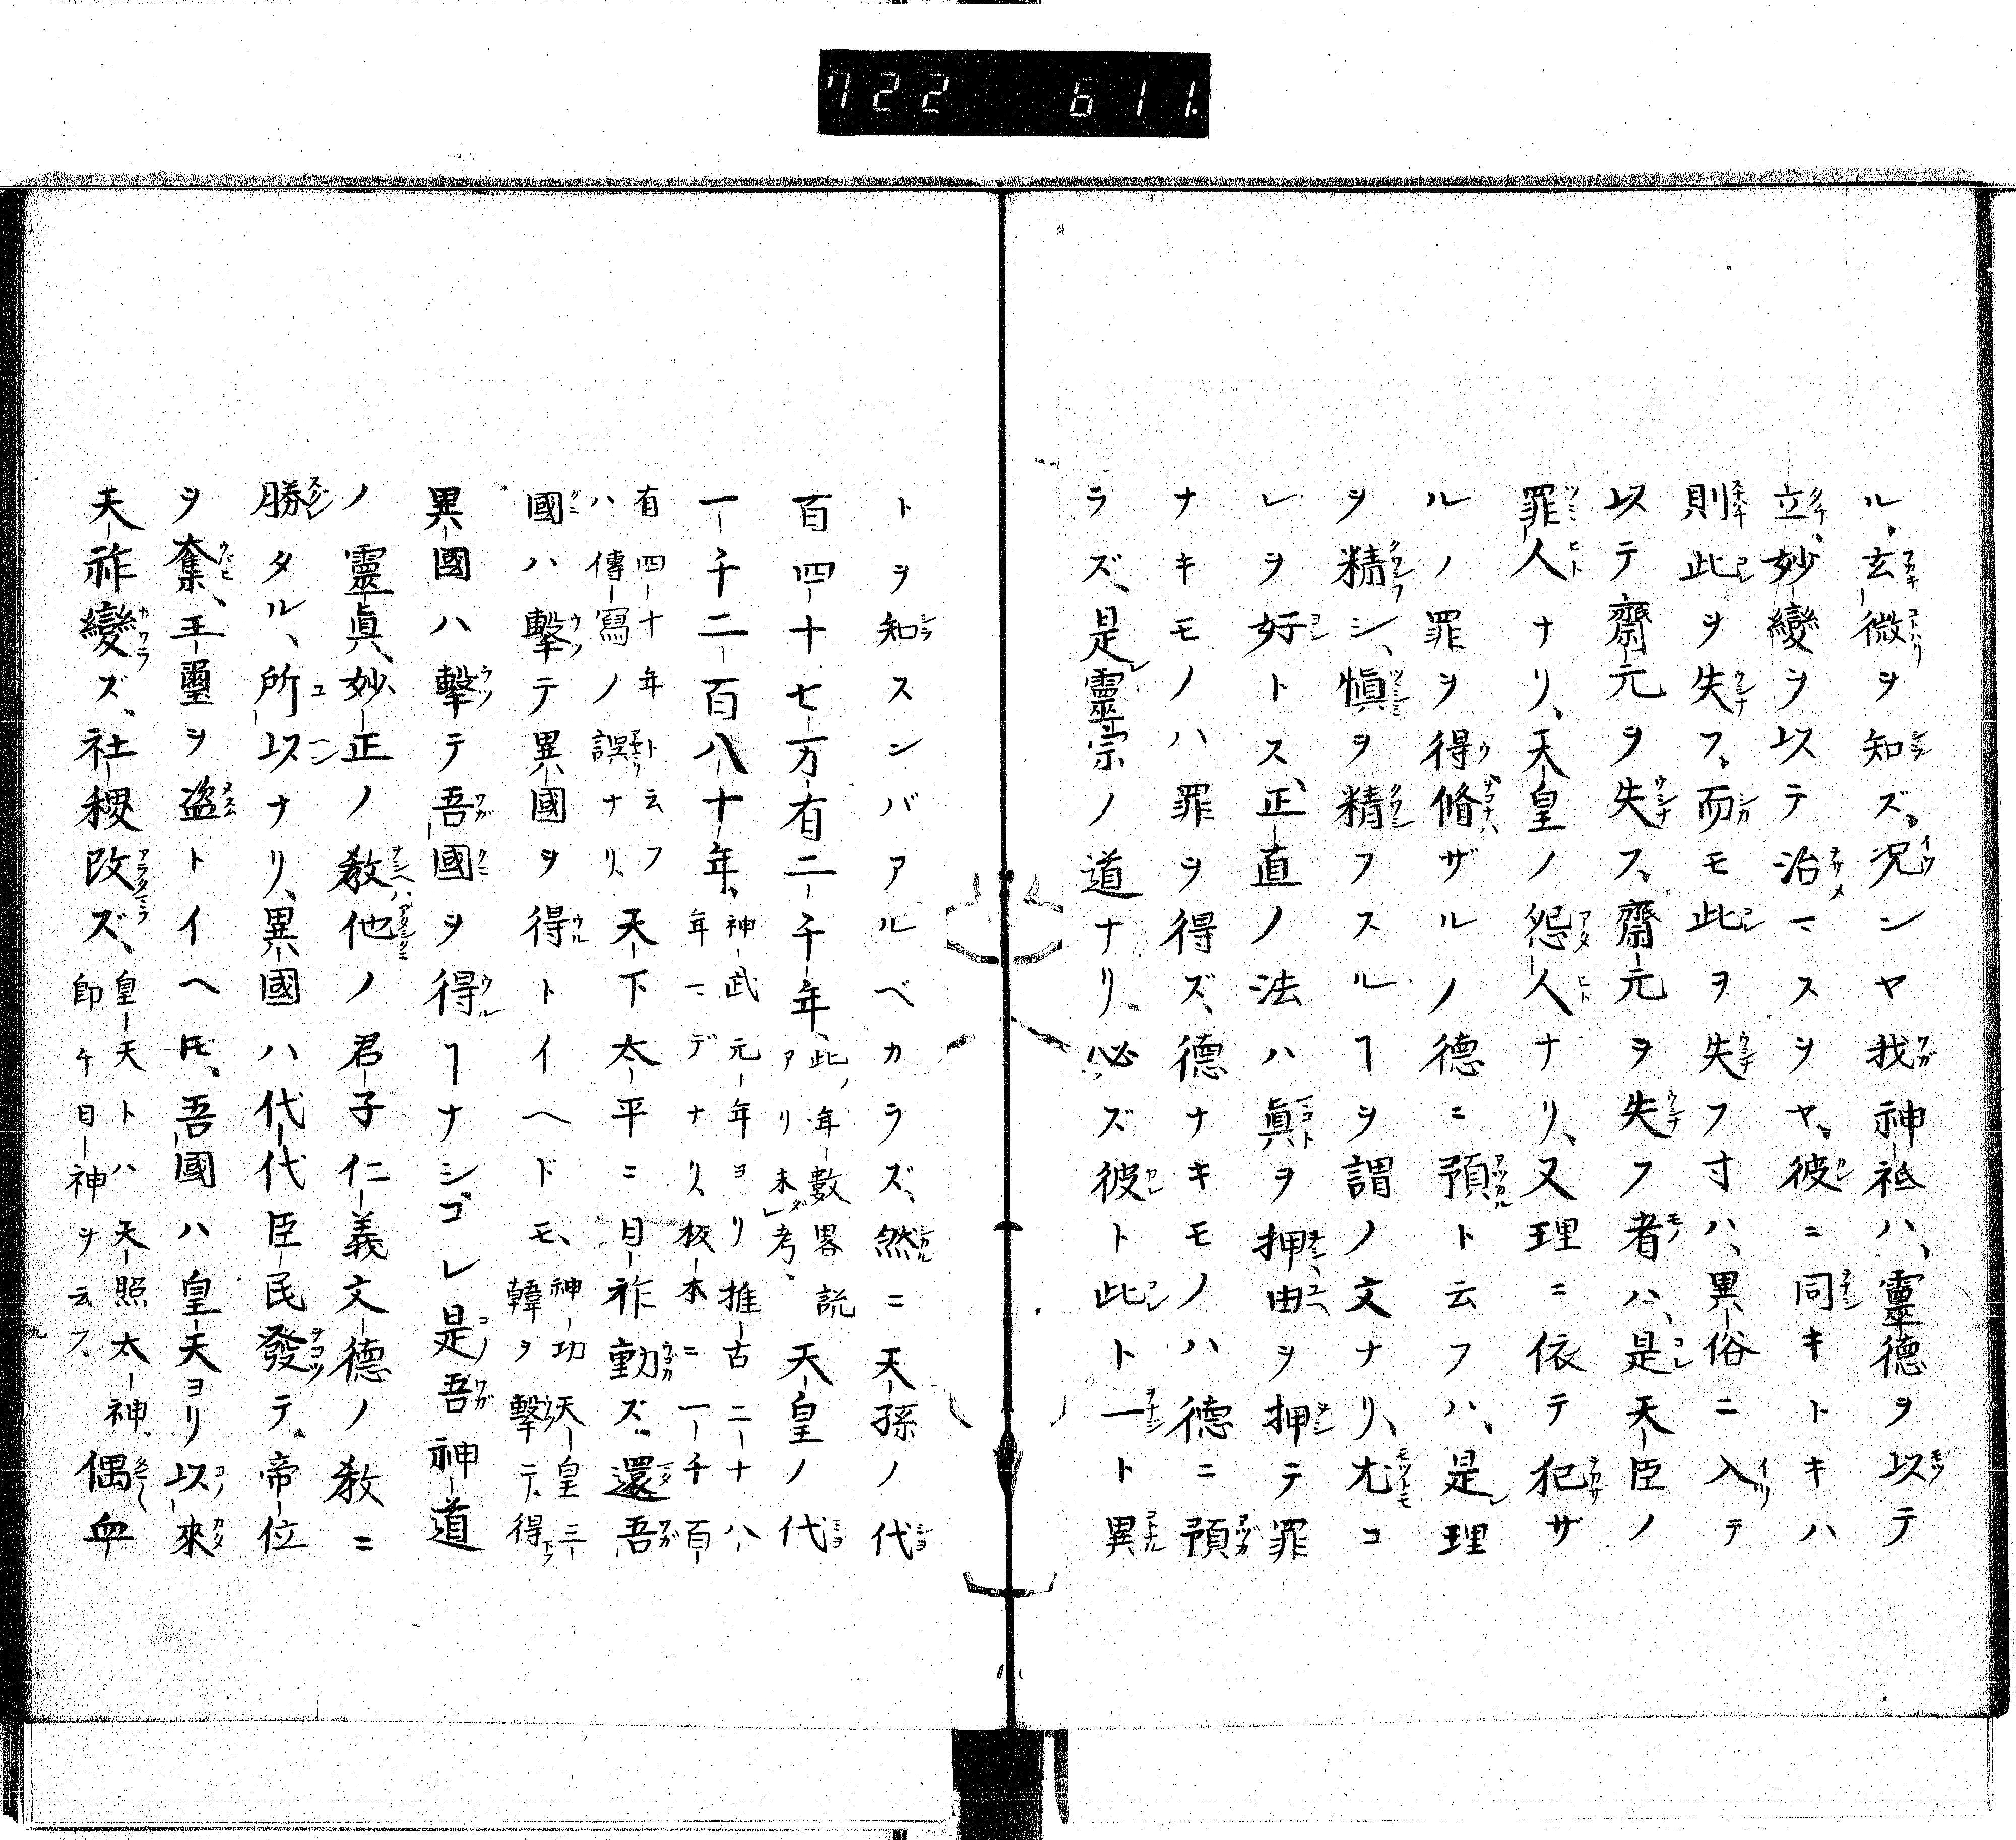 722 611
ル、玄微ヲ知ズ、况ンヤ我神祇ハ、靈德ヲ以テ
立、妙變ヲ以テ治マスヲヤ、彼ニ同キトキハ
則此ヲ失フ、而モ此ヲ失フ寸ハ、異俗ニ入テ
以テ齋元ヲ失フ、齋元ヲ失フ者ハ、是天臣ノ
罪人ナリ、天皇ノ怨人ナリ、又理ニ依テ犯ザ
ルノ罪ヲ得、脩ザルノ德ニ預ト云フハ、是レ理
ヲ精シ、愼ヲ精フスルヿヲ謂ノ文ナリ、尤コ
レヲ好トス、正直ノ法ハ眞ヲ押、由ヲ押テ罪
ナキモノハ罪ヲ得ズ、德ナキモノハ德ニ預
ラズ、是レ靈宗ノ道ナリ、必ズ彼ト此ト一ト異
トヲ知スンバアルベカラズ、然ニ天孫ノ代
百四十七万有二千年、此ノ年數畧説アリ未ダレ考、天皇ノ代
一千二百八十年、神武元年ヨリ推古二十八年マデナリ、板本ニ一千百
有四十年ト云フハ傳寫ノ誤ナリ、天下太平ニ日祚動ズ、還吾
國ハ擊テ異國ヲ得トイヘドモ、神功天皇三韓ヲ擊テ、得
異國ハ擊テ吾國ヲ得ヿナシ、コレ是吾神道
ノ靈眞、妙正ノ教、他ノ君子仁義文德ノ教ニ
勝タル、所以ナリ、異國ハ代代臣民發テ、帝位
ヲ奪、王璽ヲ盗トイヘ𪜈、吾國ハ皇天ヨリ以來
天祚變ズ、社稷改ズ、皇天トハ天照太神、即チ日神ヲ云フ、偶血
九